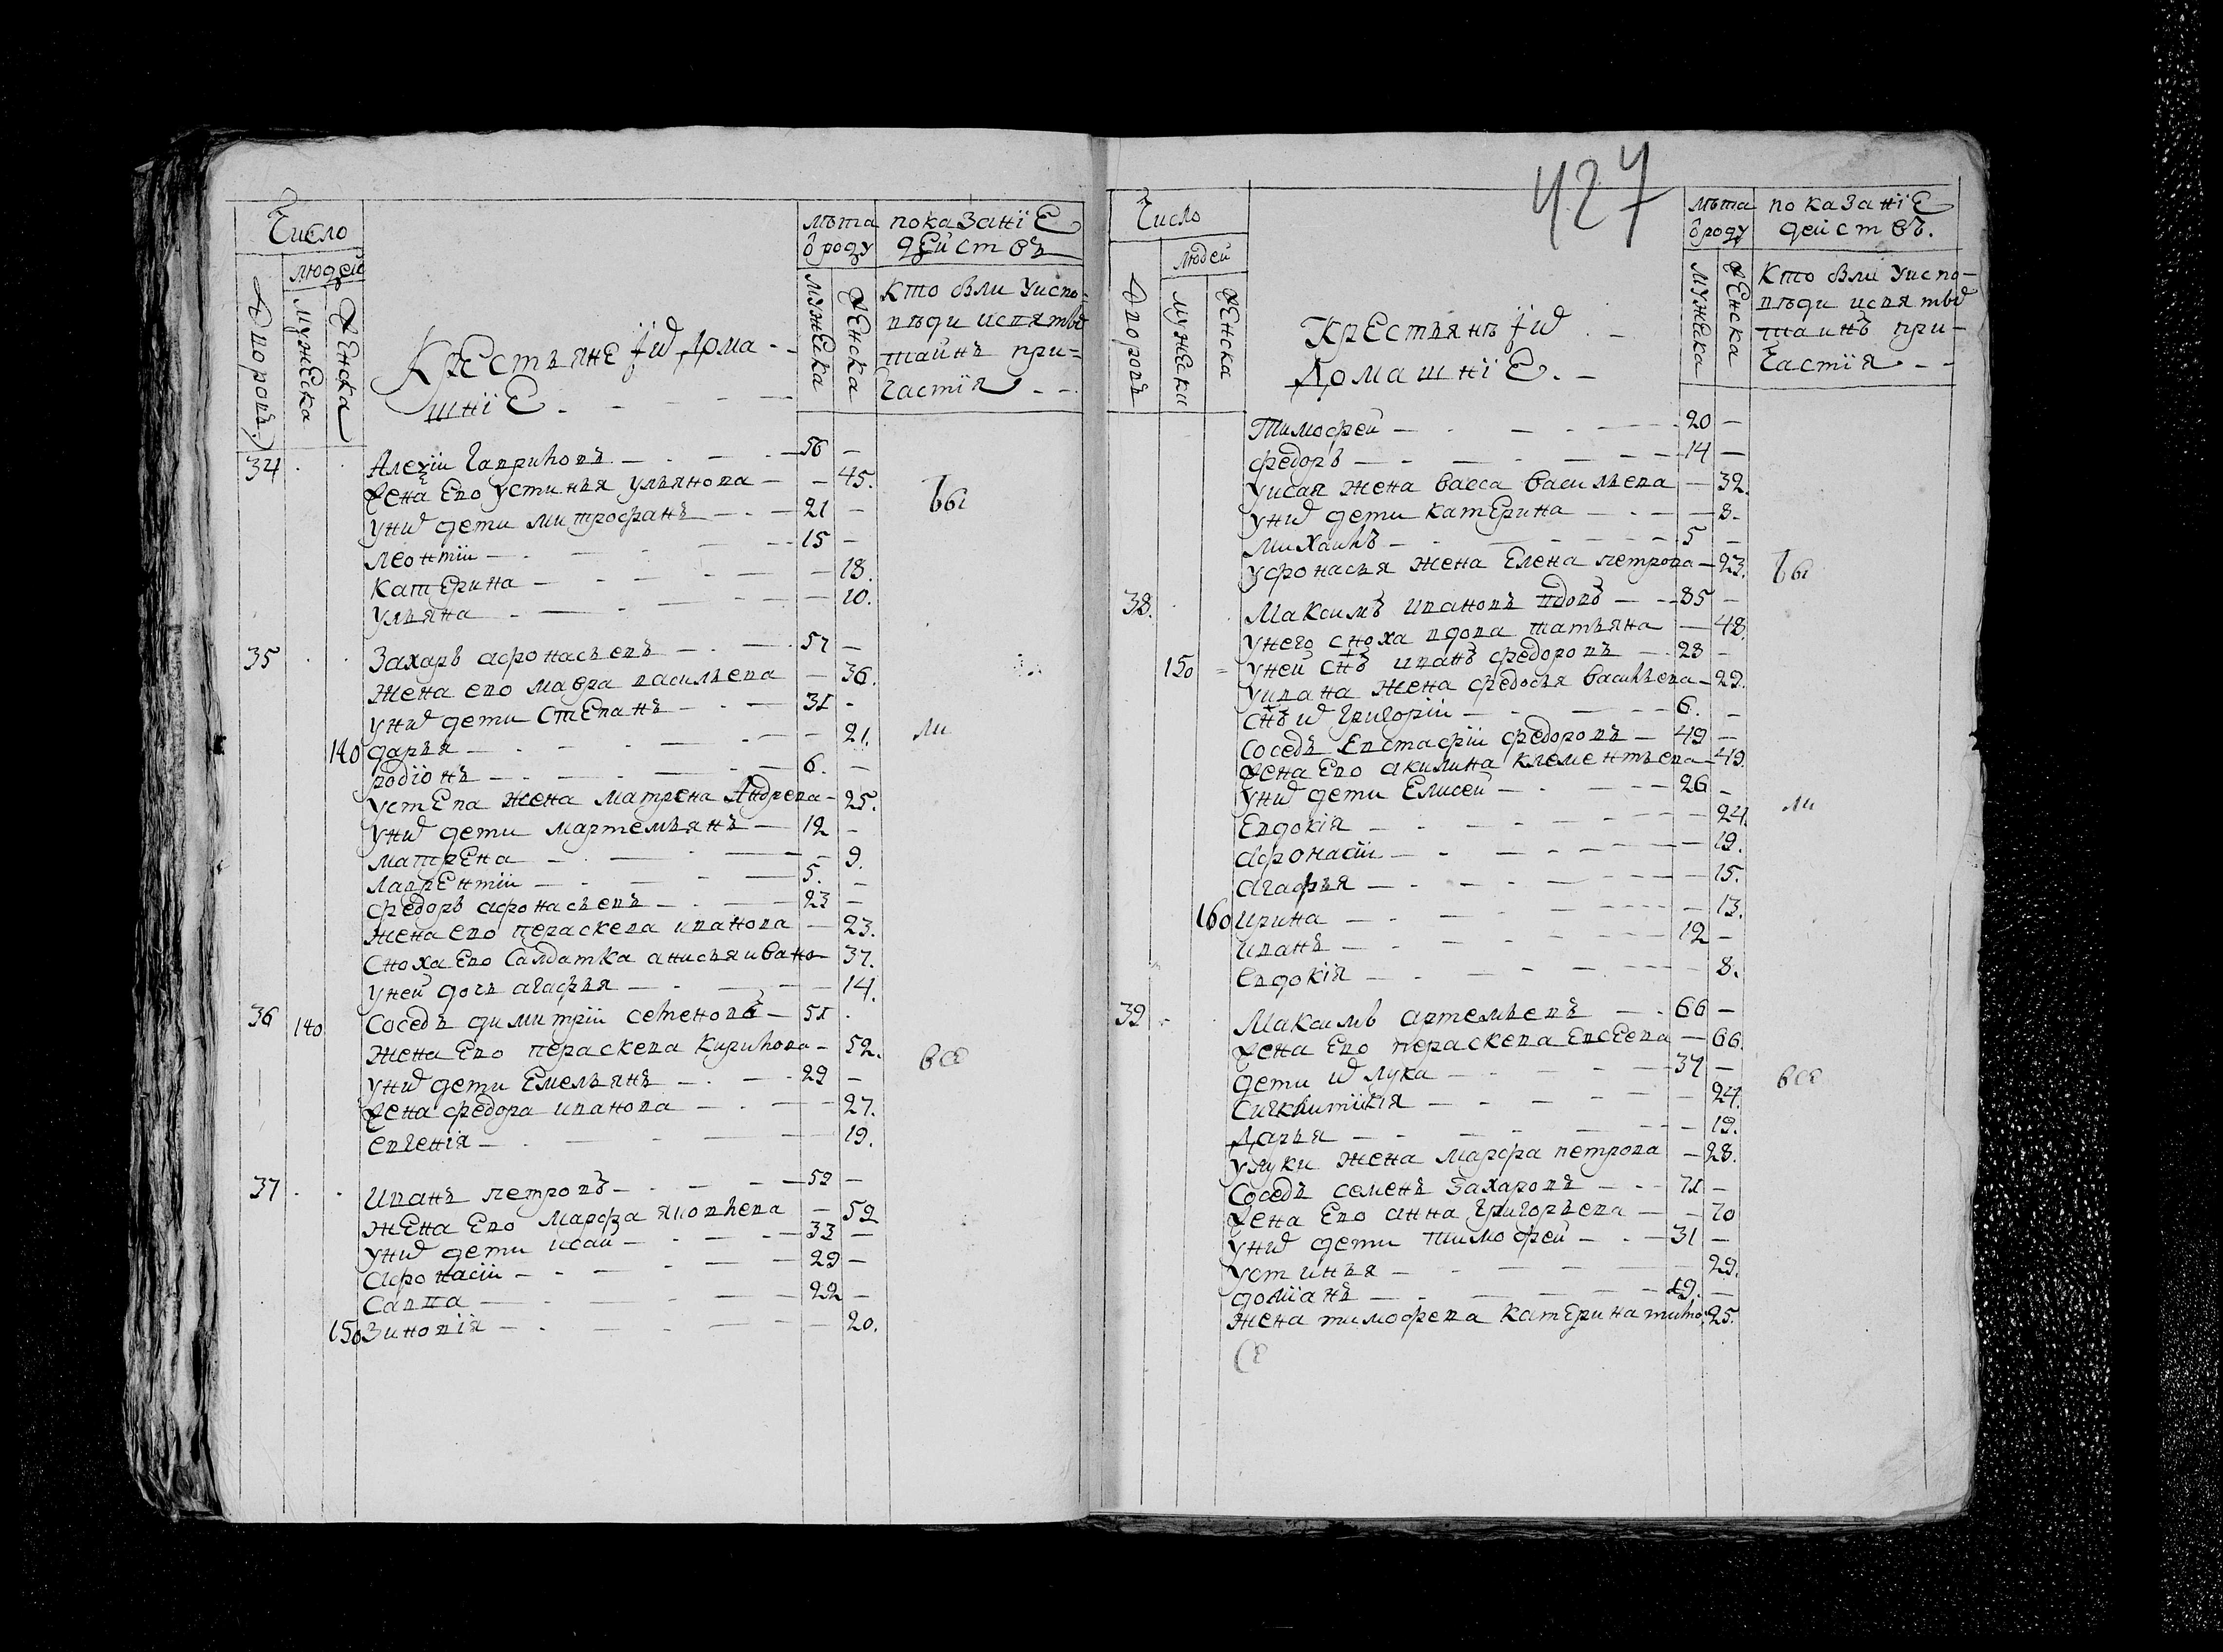 Число
людей
Дворовъ
мужеска
женска
Крестьяне и ихъ дома-
шнїе
лѣта ѿ роду
мужеска
женска
показанїе действъ
Кто были у испо-
вѣди и святыхъ
таинъ при-
частїя
34 Алеѯїи Гавриловъ 56
жена ево устинья ульянова 45.
у нихъ дети митрофанъ 21
леонтїи 15
катерина 18.
ульяна 10.
бы
35 Захаръ афонасьевъ 57
жена ево мавра васильева 36.
у нихъ дети степанъ 31
140 дарья 21.
родїонъ 6.
у степа жена матрена Андрева 25.
у нихъ дети мартемьянъ 12
матрена 9.
лаврентїи 5.
федоръ афонасьевъ 23
жена ево пераскева иванова 23.
сноха ево салдатка анисья ивано 37.
у ней дочь агафья 14.
ли
36 140 Соседъ димитрїи семеновъ 51
жена ево пераскева Кирилова 52.
у нихъ дети Емельянъ 29
жена федора иванова 27.
евгенїя 19.
все
37 Иванъ петровъ 52
жена ево марфа яковлева 52
у нихъ дети исай 33
афонасїи 29
савва 22
150 Зиновїя 20.
427
Число
людей
Дворовъ
мужеска
женска
Крестьянъ ихъ
Домашнїе.
лѣта ѿ роду
мужеска
женска
показанїе действъ.
Кто были у испо-
вѣди и святыхъ
таинъ при-
частїя
Тимофей 20
федоръ 14
у исая жена васса васильева 32.
у нихъ дети катерина 8.
михаилъ 5
у афонасья жена Елена петрова 23.
бы
38. Максимъ ивановъ вдовъ 85
у него сноха вдова татьяна 48.
150 у ней снъ иванъ федоровъ 28
у ивана жена федосья васильева 29.
снъ ихъ григорїи 6.
соседъ Евстафїи федоровъ 49
жена ево акилина клементьева 49.
у нихъ дети Елисей 26
Евдокїя 24.
афонасїи 19.
агафья 15.
160 ирина 13.
иванъ 12
евдокїя 8.
ли
39 Максимъ артемьевъ 66
жена ево пераскева Евсеева 66.
дети ихъ лука 37
24.
Дарья 19.
у луки жена марфа петрова 28.
Соседъ семенъ Захаровъ 71
жена ево анна григорьева 70
у нихъ дети тимофей 31
устинья 29.
домїанъ 19.
жена тимофева катерина 25.
все